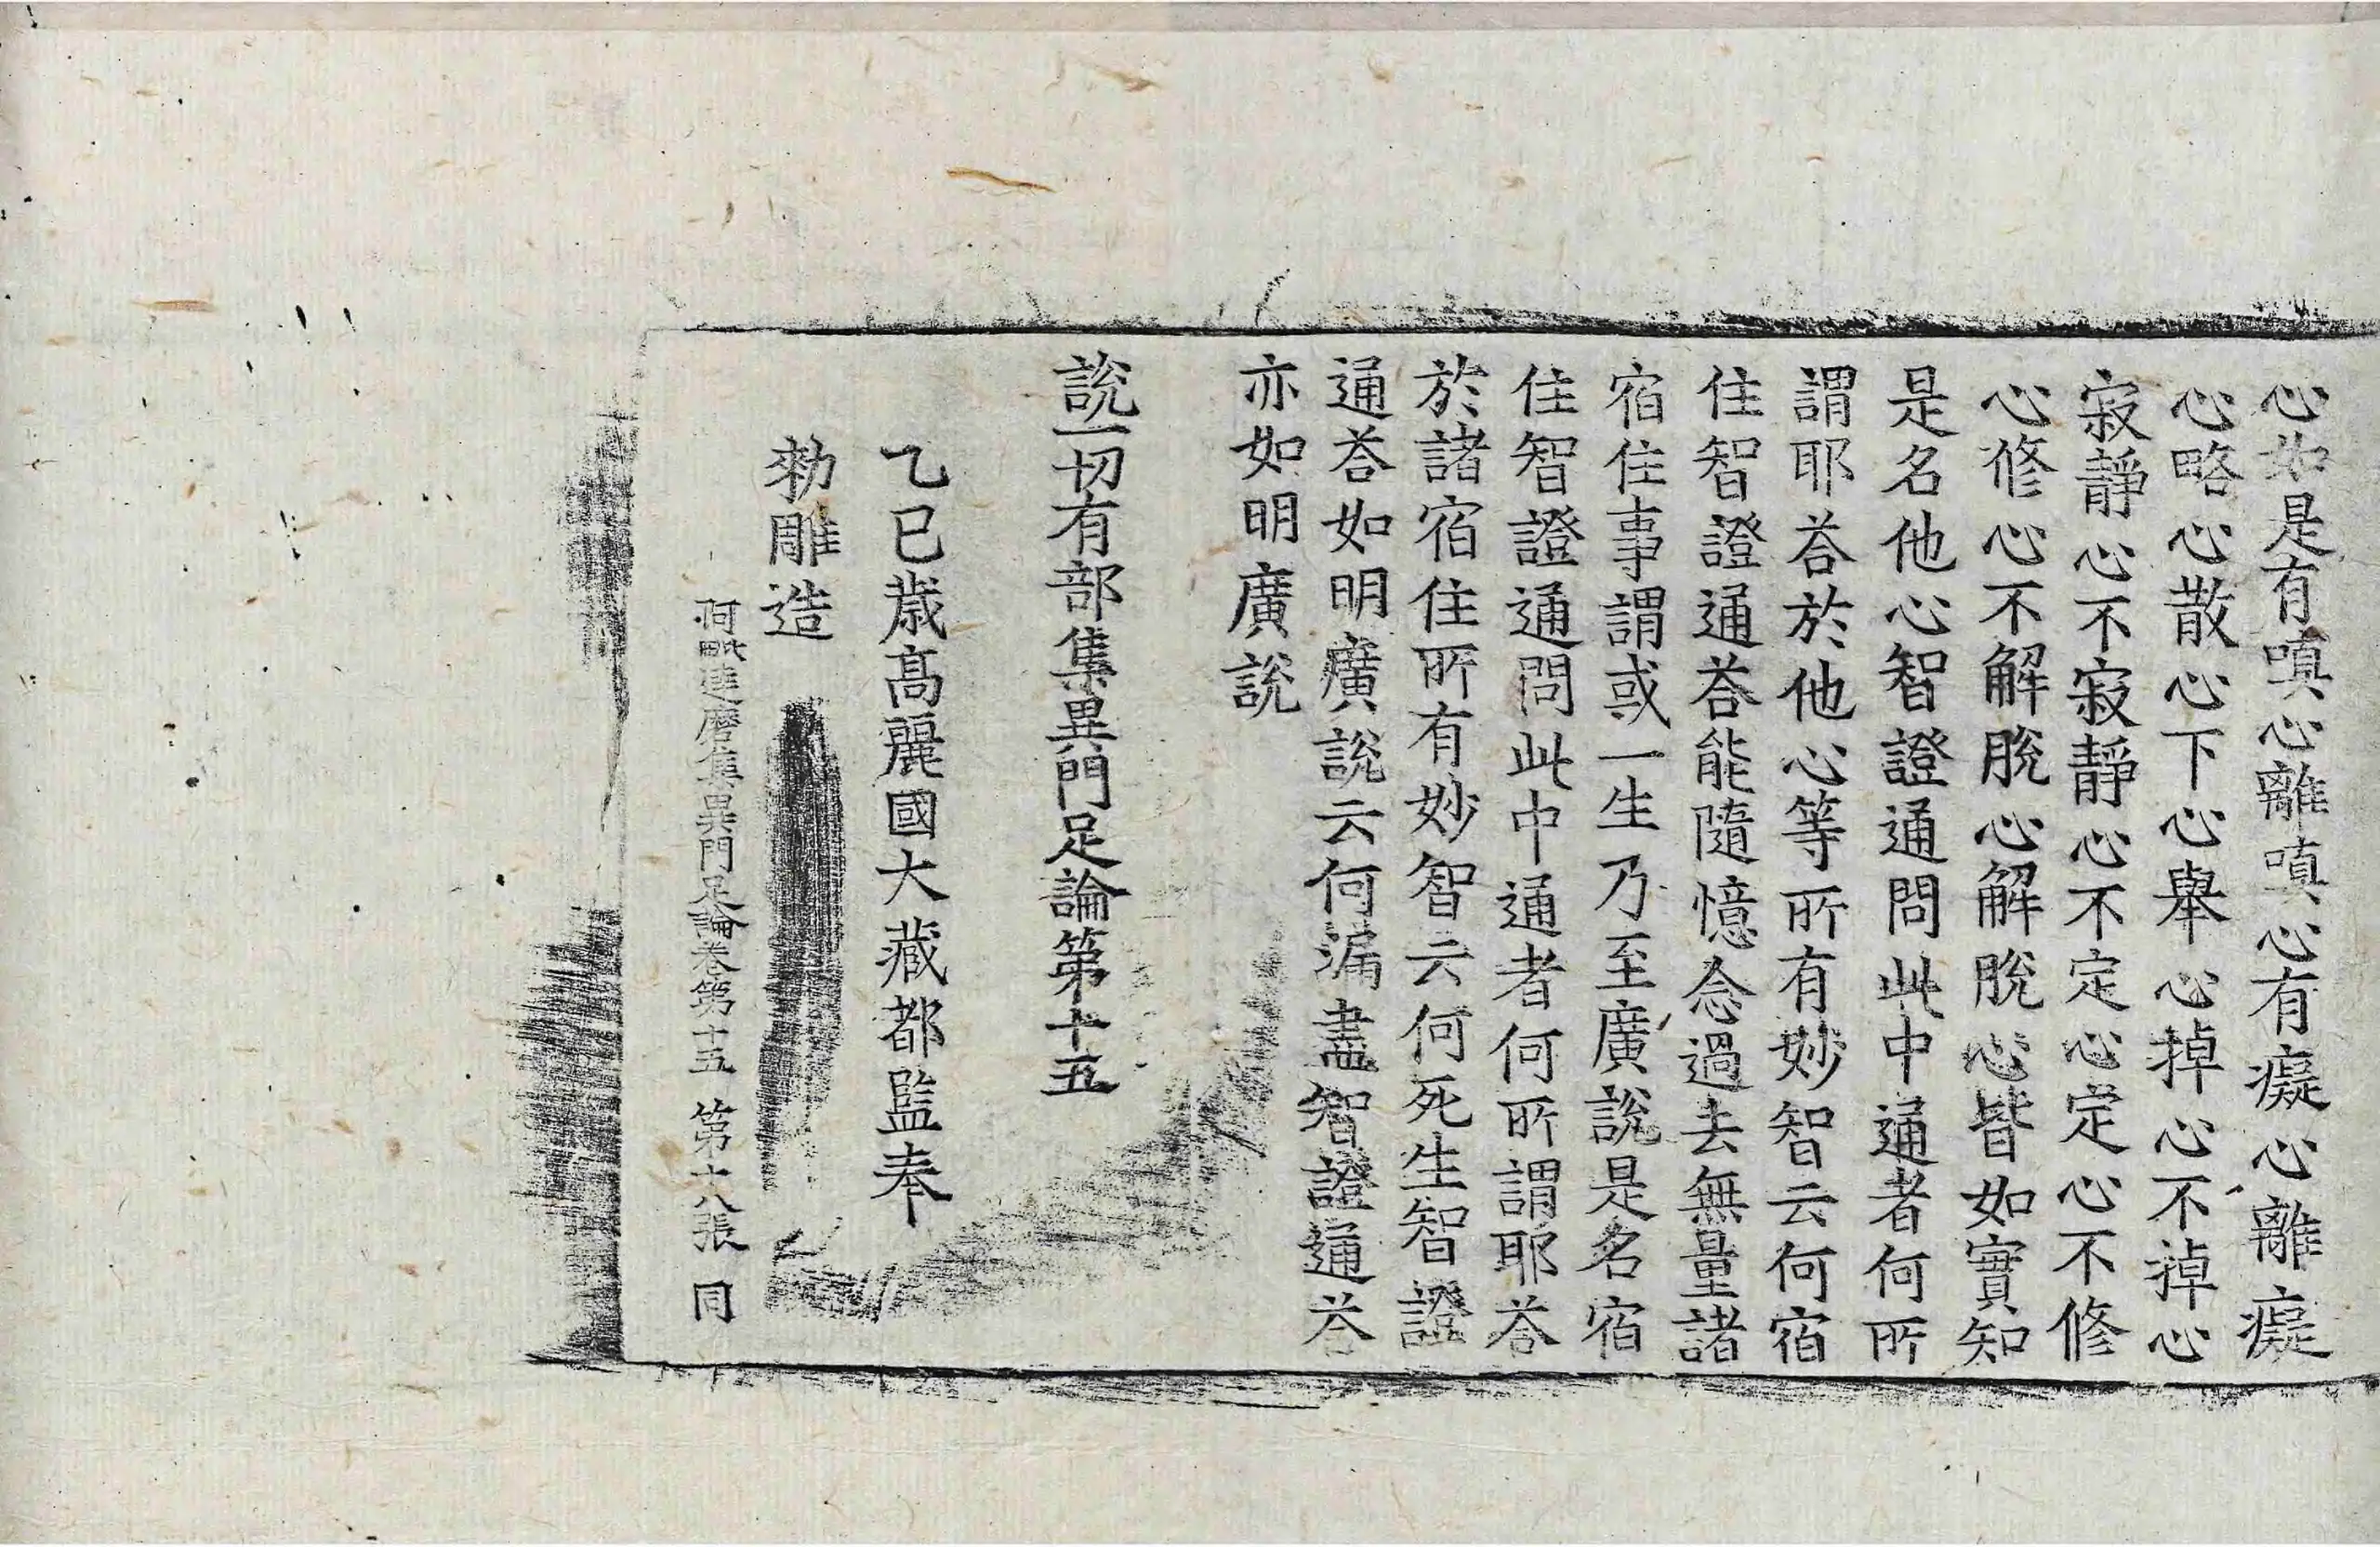 心如是有嗔心離嗔心有癡心離癡
心略心散心下心舉心掉心不掉心
寂靜心不寂靜心不定心定心不修
心修心不解脫心解脫心皆如實知
是名他心智證通問此中通者何所
謂耶荅於他心等所有妙智云何宿
住智證通荅能隨憶念過去無量諸
宿住事謂或一生乃至廣說是名宿
住智證通問此中通者何所謂耶荅
於諸宿住所有妙智云何死生智證
通荅如明廣說云何漏盡智證通荅
亦如明廣說
說一切有部集異門足論第十五
乙巳歲高麗國大藏都監奉
勑雕造
阿毗達磨集異門足論卷第十五 第十八張 同